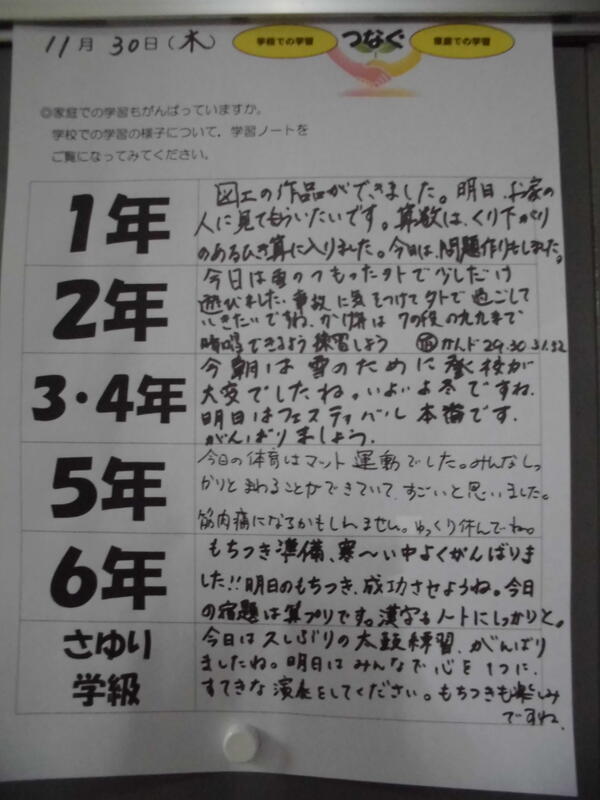 11月30日(木)
学校での学習 つなぐ 家庭での学習
◎家庭での学習もがんばっていますか。
学校での学習の様子について、学習ノートを
ご覧になってみてください。
1年
図工の作品ができました。明日、お家の
人に見てもらいたいです。算数は、くり下がり
のあるひき算に入りました。今日は、問題作りもしました。
2年
今日は雪のつもった外で少しだけ
遊びました。事故に気をつけて外で過ごして
いきたいですね。かけ算は7の段の九九まで
暗唱できるよう練習しよう 宿 かんド29.30.31.32
3・4年
今朝は雪のために登校が
大変でしたね。いよいよ冬ですね。
明日はフェスティバル本番です。
がんばりましょう。
5年
今日の体育はマット運動でした。みんなしっ
かりとまわることができていて、すごいと思いました。
筋肉痛になるかもしれません。ゆっくり休んでね。
6年
もちつき準備、寒〜い中よくがんばりま
した!!明日のもちつき、成功させようね。今日
の宿題は算プリです。漢字もノートにしっかりと。
さゆり
学級
今日は久しぶりの太鼓練習、がんばり
ましたね。明日はみんなで心を1つに、
すてきな演奏をしてください。もちつきも楽しみ
ですね。